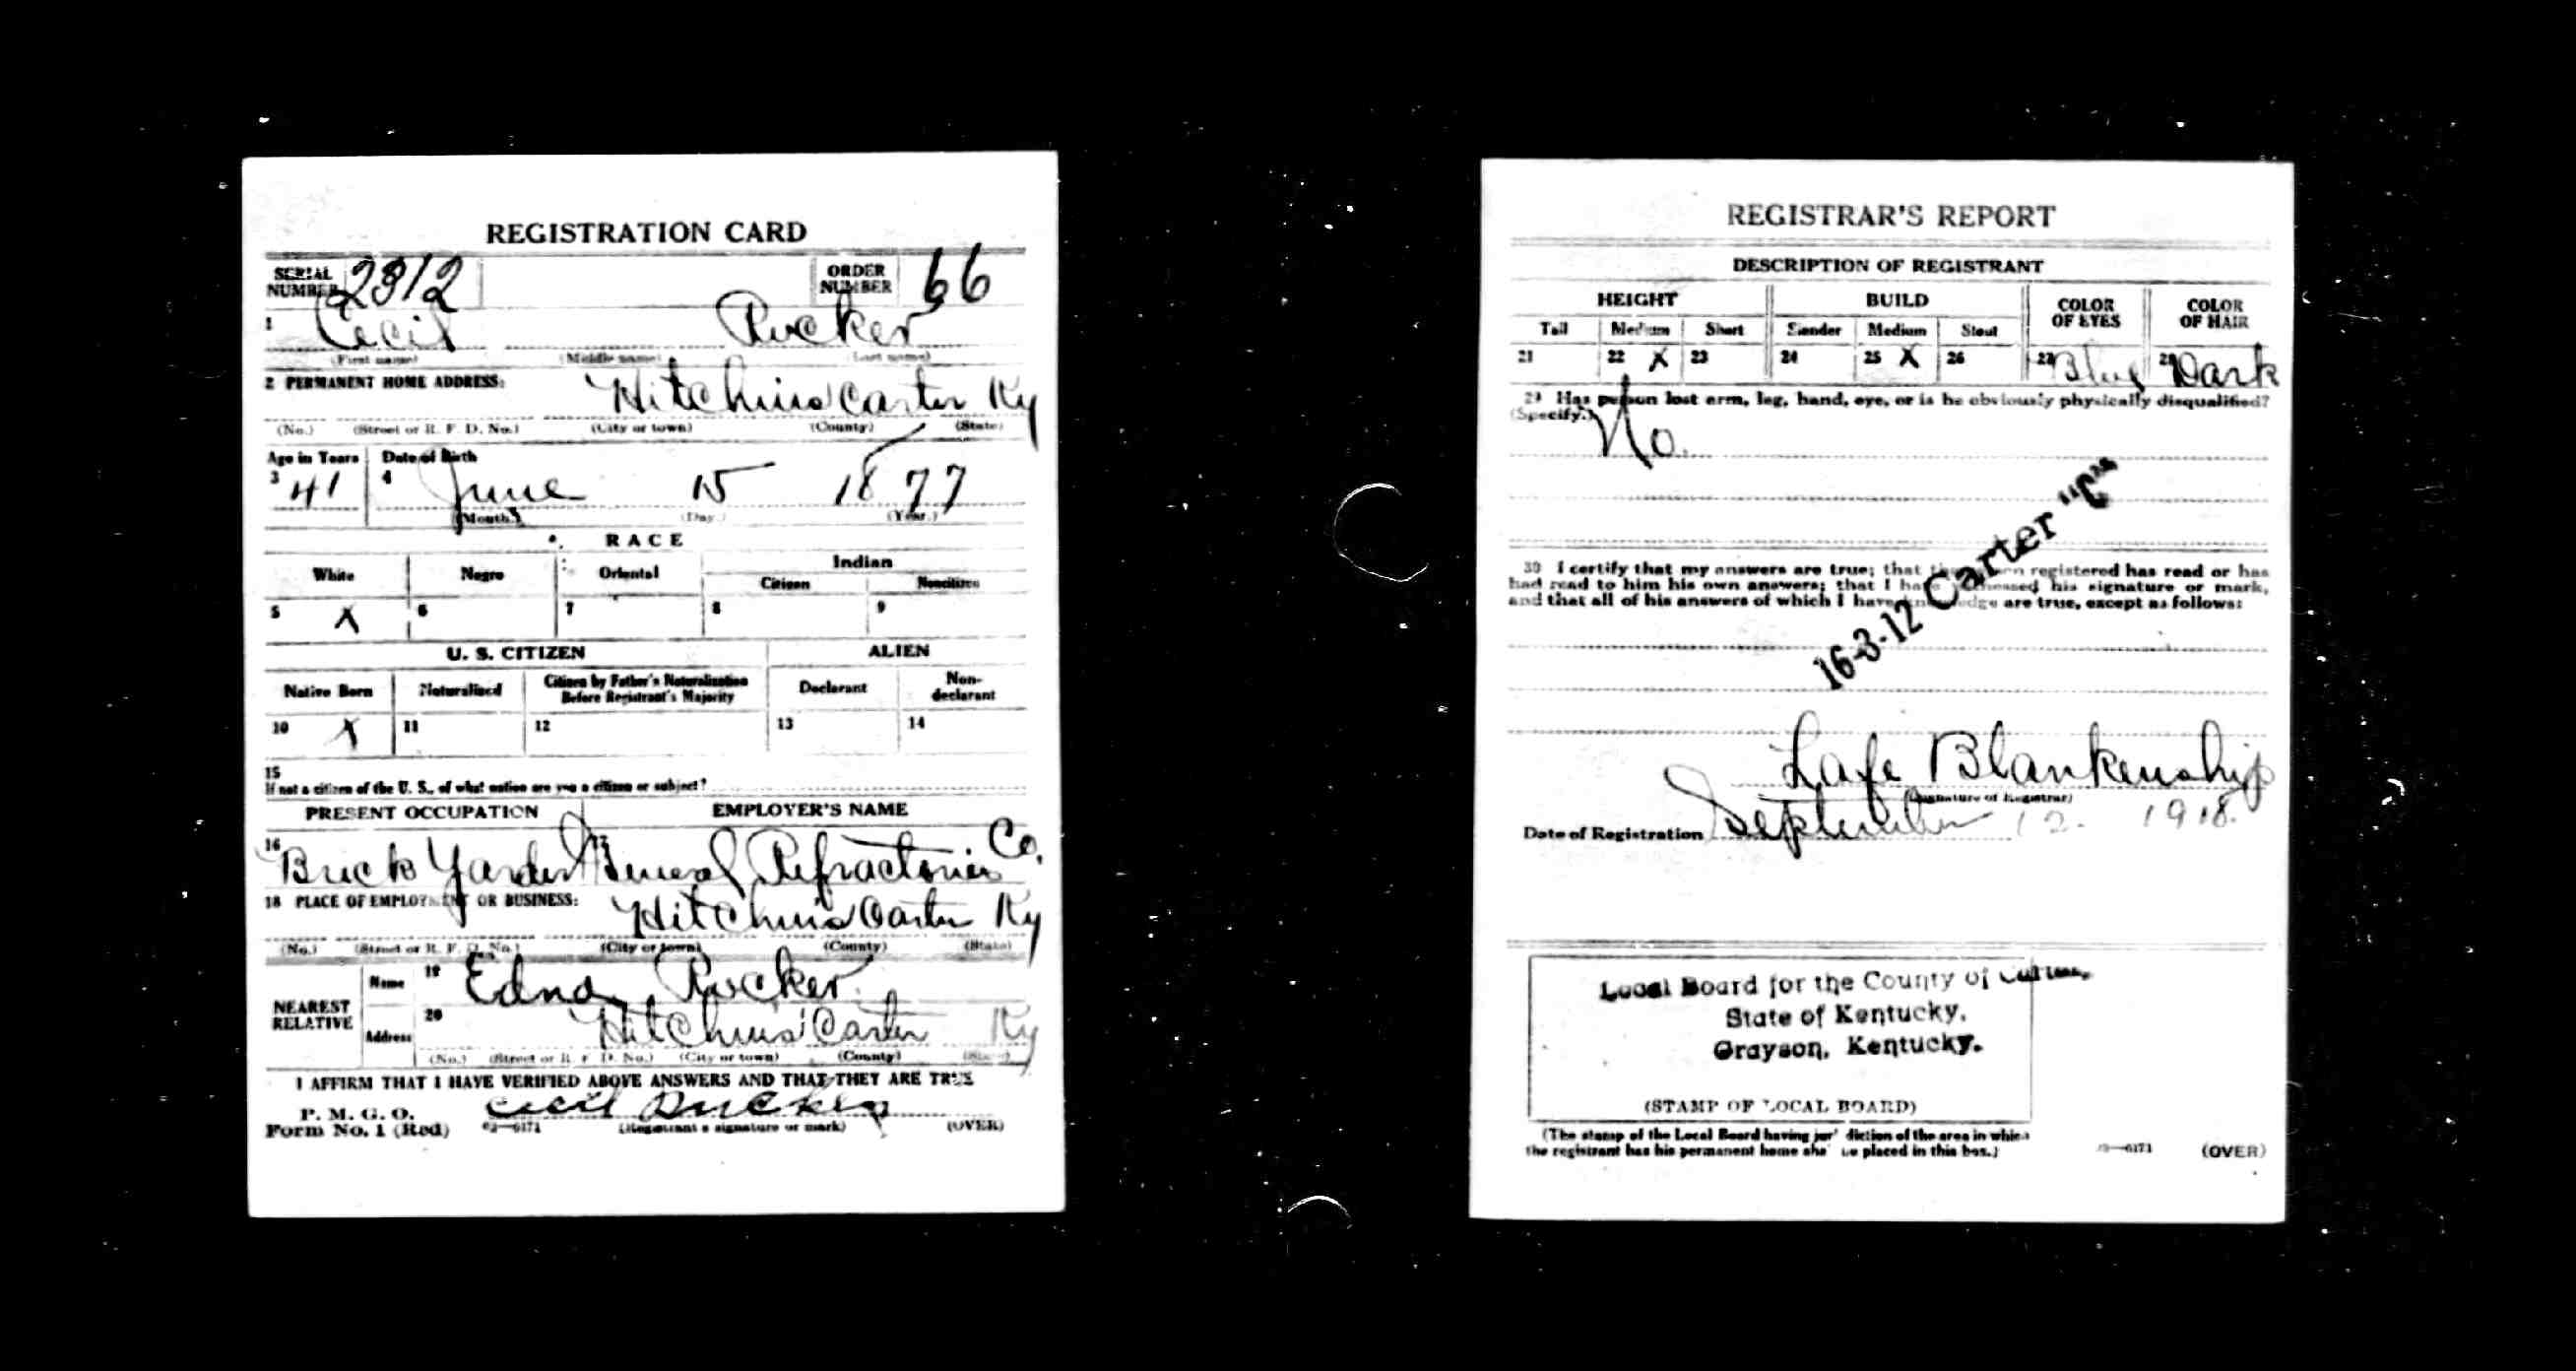 REGISTRATION CARD
SERIAL NUMBER 2312 ORDER NUMBER 66
1 Cecil Rucker
(First name) (Middle name) (Last name)
2 PERMANENT HOME ADDRESS:
Hitchins Carter Ky
(No.) (Street or R. F. D. No.) (City or town) (County) (State)
Age in Years Date of Birth
3 41 4 June 15 1877
(Month.) (Day.) (Year.)
RACE
White Negro Oriental Indian
Citizen Noncitizen
5 X 6 7 8 9
U. S. CITIZEN ALIEN
Native Born Naturalized Citizen by Father's Naturalization Before Registrant's Majority Declarant Non-declarant
10 X 11 12 13 14
15
If not a citizen of the U. S., of what nation are you a citizen or subject?
PRESENT OCCUPATION EMPLOYER'S NAME
16 Brick Yarder 17 General Refractories Co.
18 PLACE OF EMPLOYMENT OR BUSINESS:
Hitchins Carter Ky
(No.) (Street or R. F. D. No.) (City or town) (County) (State)
NEAREST RELATIVE Name 19 Edna Rucker
Address 20 Hitchins Carter Ky
(No.) (Street or R. F. D. No.) (City or town) (County) (State)
I AFFIRM THAT I HAVE VERIFIED ABOVE ANSWERS AND THAT THEY ARE TRUE
P. M. G. O.
Form No. 1 (Red) 03—6171 Cecil Rucker
(Registrant's signature or mark) (OVER)
REGISTRAR'S REPORT
DESCRIPTION OF REGISTRANT
HEIGHT BUILD COLOR OF EYES COLOR OF HAIR
Tall Medium Short Slender Medium Stout
21 22 X 23 24 25 X 26 27 Blue 28 Dark
29 Has person lost arm, leg, hand, eye, or is he obviously physically disqualified?
(Specify.) No.
30 I certify that my answers are true; that the person registered has read or has
had read to him his own answers; that I have witnessed his signature or mark,
and that all of his answers of which I have knowledge are true, except as follows:
16-3-12 Carter "C"
Lafe Blankenship
(Signature of Registrar)
Date of Registration September 12. 1918.
Local Board for the County of Carter,
State of Kentucky,
Grayson, Kentucky.
(STAMP OF LOCAL BOARD)
(The stamp of the Local Board having jurisdiction of the area in which
the registrant has his permanent home shall be placed in this box.)
03—6171 (OVER)